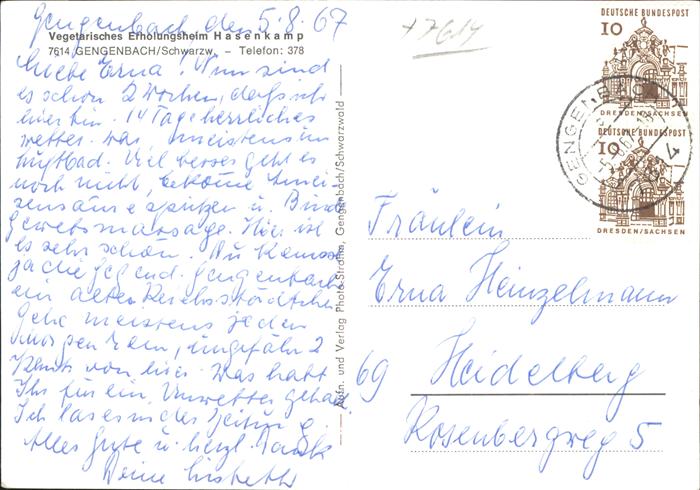 Gengenbach den 5.8.67
Vegetarisches Erholungsheim Hasenkamp
7614 GENGENBACH/Schwarzw. – Telefon: 378
Liebe Erna! Nun sind
es schon 2 Wochen, daß ich
hier bin. 14 Tage herrliches
Wetter. War meistens im
Luftbad. Viel besser geht es
noch nicht, bekomme Amei-
sensäure spritzen u. Binde
gewebsmassage. Hier ist
es sehr schön. Du kennst
ja die Gegend. Gengenbach
ein altes Reichsstädtchen
Gehe meistens jeden
Morgen rein, ungefähr 2
von hier. Was habt
Ihr für ein Unwetter gehabt
Ich las es in der Zeitung.
Alles Gute u. herzl. Dank
Deine Lisbeth
Aufn. und Verlag Photo-Strohm, Gengenbach/Schwarzwald
+7614
DEUTSCHE BUNDESPOST
10
DRESDEN/SACHSEN
DEUTSCHE BUNDESPOST
10
DRESDEN/SACHSEN
GENGENBACH
Fräulein
Erna Heinzelmann
69 Heidelberg
Rosenbergweg 5